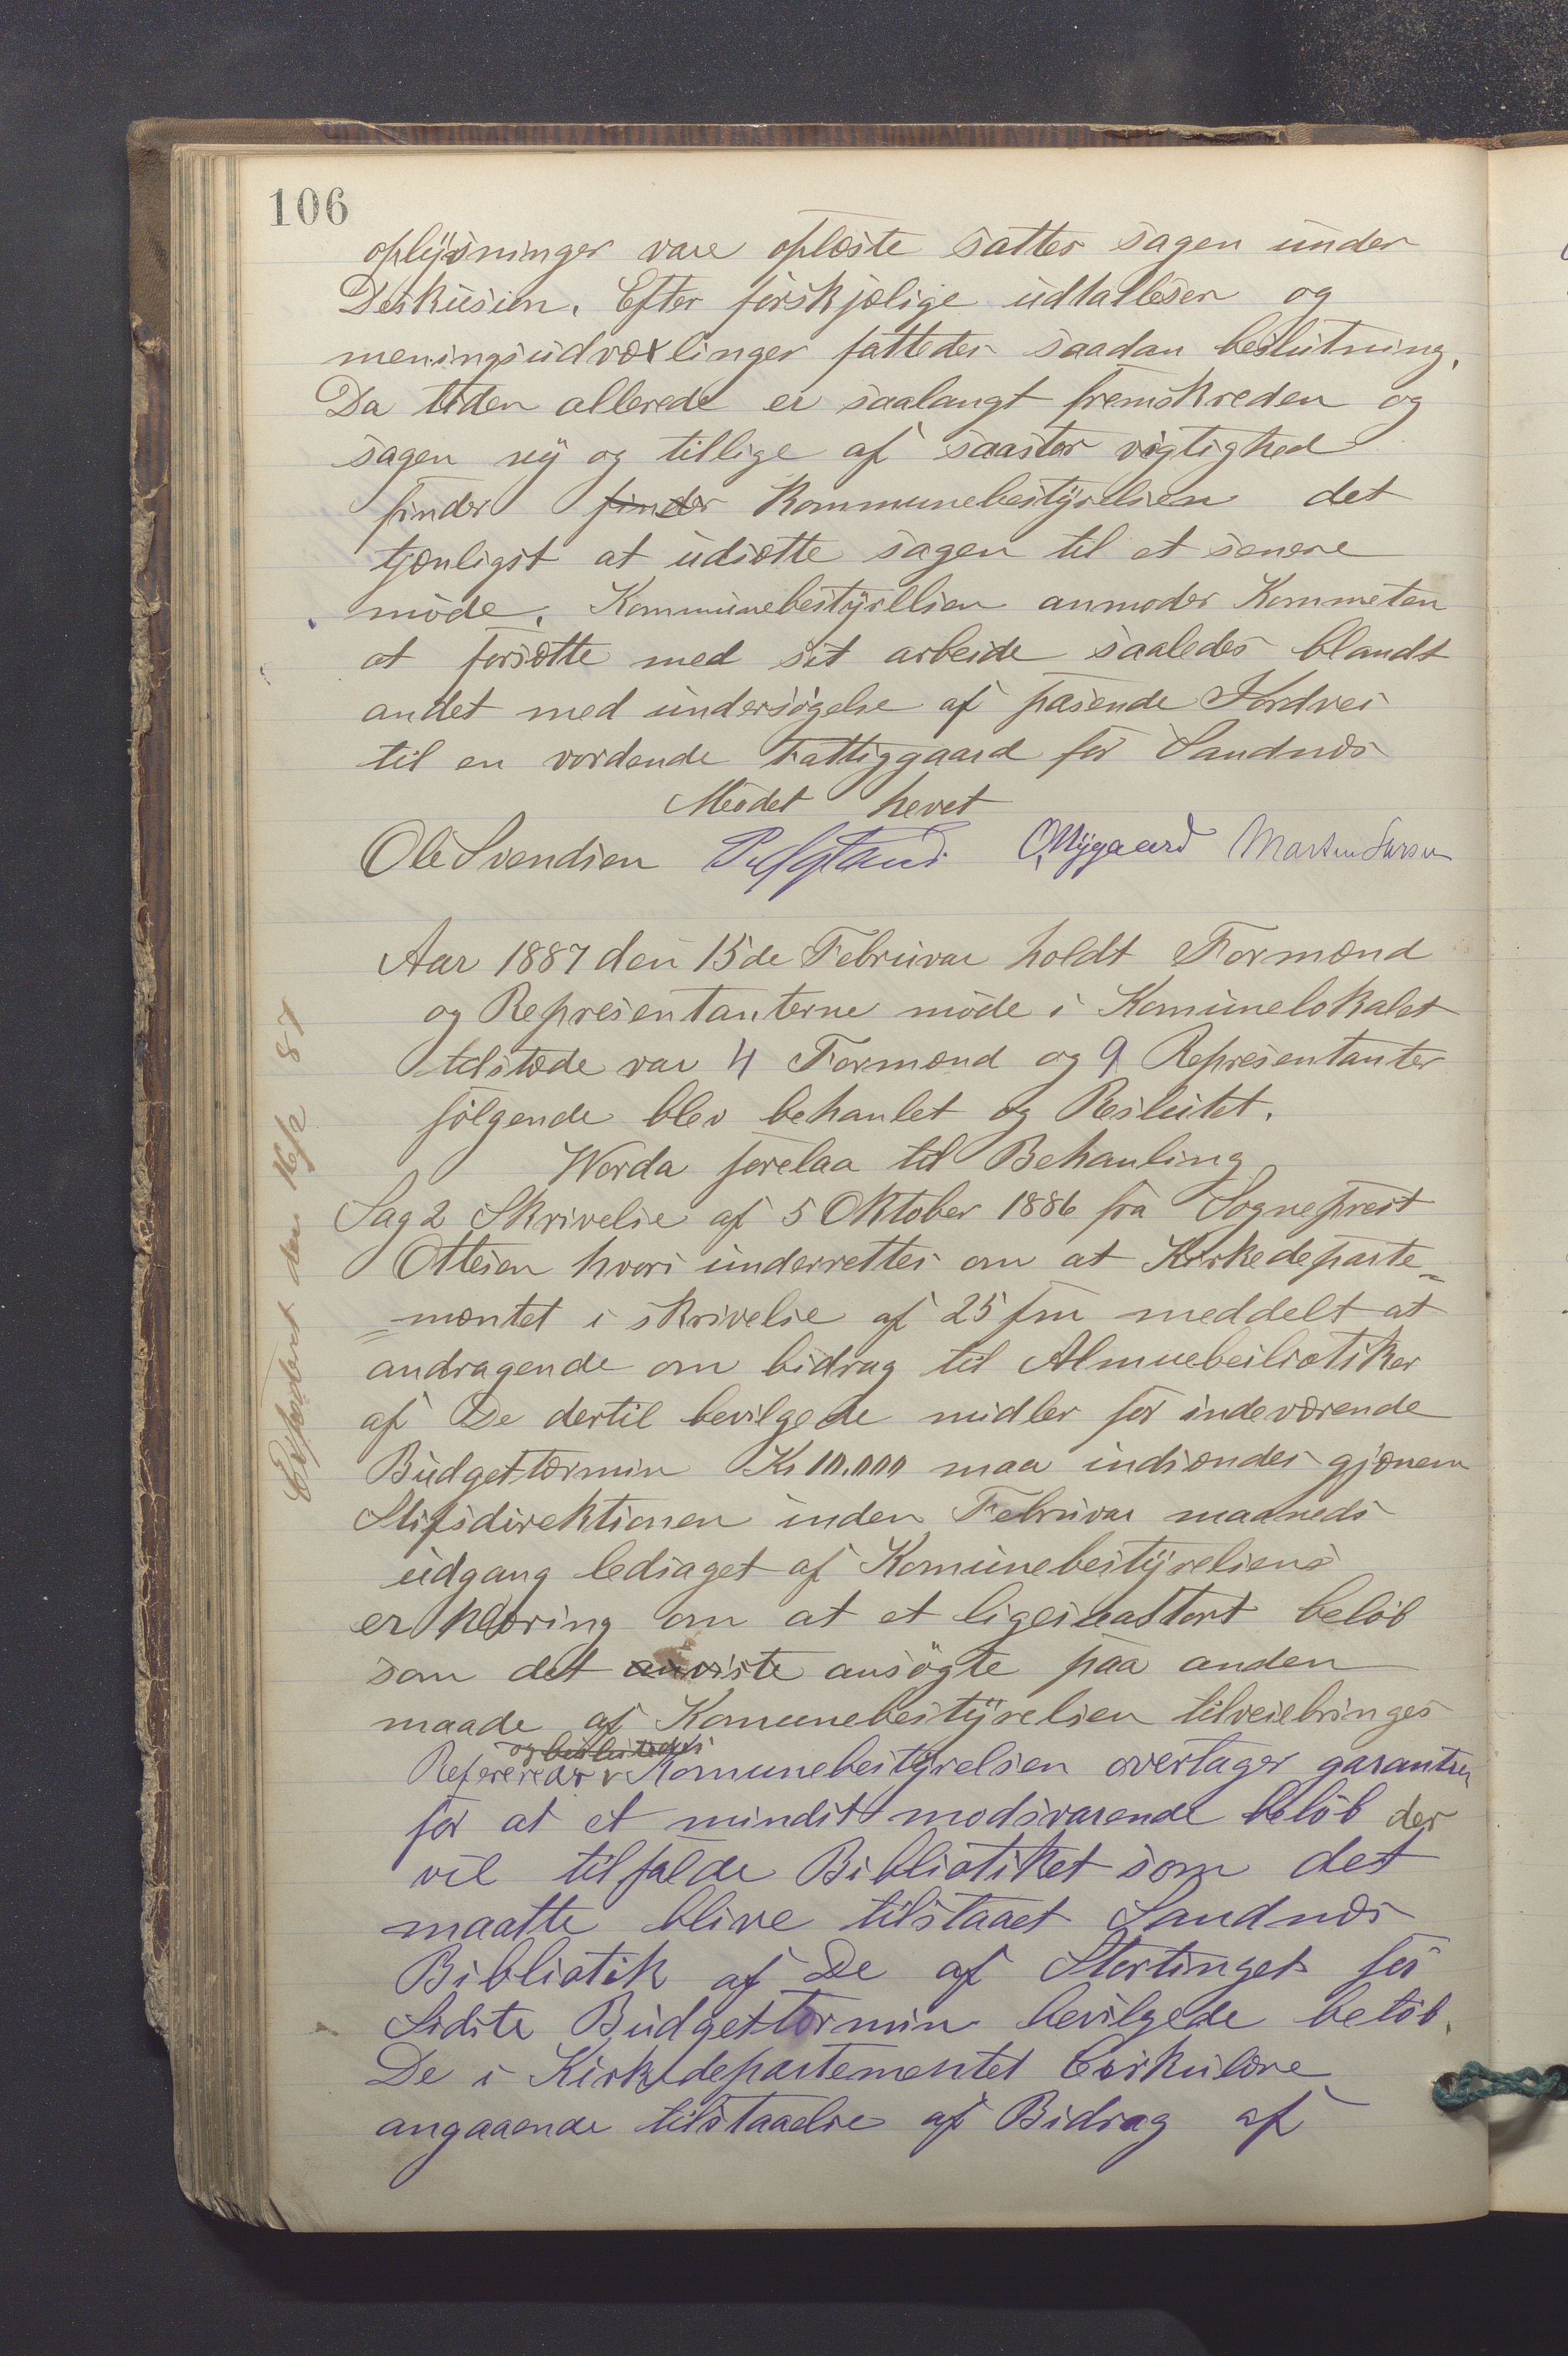 106
oplysninger vare oplæste sattes sagen under
Deskusion. Efter forskjælige udtallelser og
meningsudvexlinger fattedes saadan beslutning.
Da tiden allerede er saalangt fremskreden og
sagen ny og tillige af saastor vigtighed
finder finder Kommunebestyrelsen det
tjenligst at udsætte sagen til et senere
møde. Kommunebestyrelsen anmoder Kommeten
at forsætte med sit arbeide saaledes blandt
andet med undersøgelse af pasende Jordvei
til en vordende Fattiggaard for Sandnæs
Mødet hevet
Ole Svendsen O. Nygaard
Aar 1887 den 15de Februar holdt Formænd
og Represientanterne møde i Komunelokalet
tilstæde var 4 Formænd og 9 Represientanter
følgende blev behanlet og Beslutet.
Worda forelaa til Behanling
Sag 2 Skrivelse af 5 Oktober 1886 fra Sogneprest
Ottesen hvori underrettes om at Kirkedeparte=
=mentet i skrivelse af 25 fm meddelt at
andragende om bidrag til Almuebeiliotiker
af De dertil bevilgede midler for indeværende
Budgettermin Kr 10.000 maa indsændes gjænem
Stifsdirektionen inden Februar maaneds
udgang ledsaget af Komunebestyrelsens
erklæring om at et ligesaastort beløb
som det anviste ansøgte paa anden
maade af Komunebestyrelsen tilveiebringes
og besluttedes
Refereredes Komunebestyrelsen overtager garantien
for at et mindst modsvarende beløb der
vil tilfalde Bibliotiket som det
maatte blive tilstaaet Sandnæs
Bibliotik af De af Stortinget for
Sidste Budgettermin bevilgede beløb.
De i Kirkedepartementet Cirkulære
angaaende tilstaaelse af Bidrag af
Expedert den 16/2 87